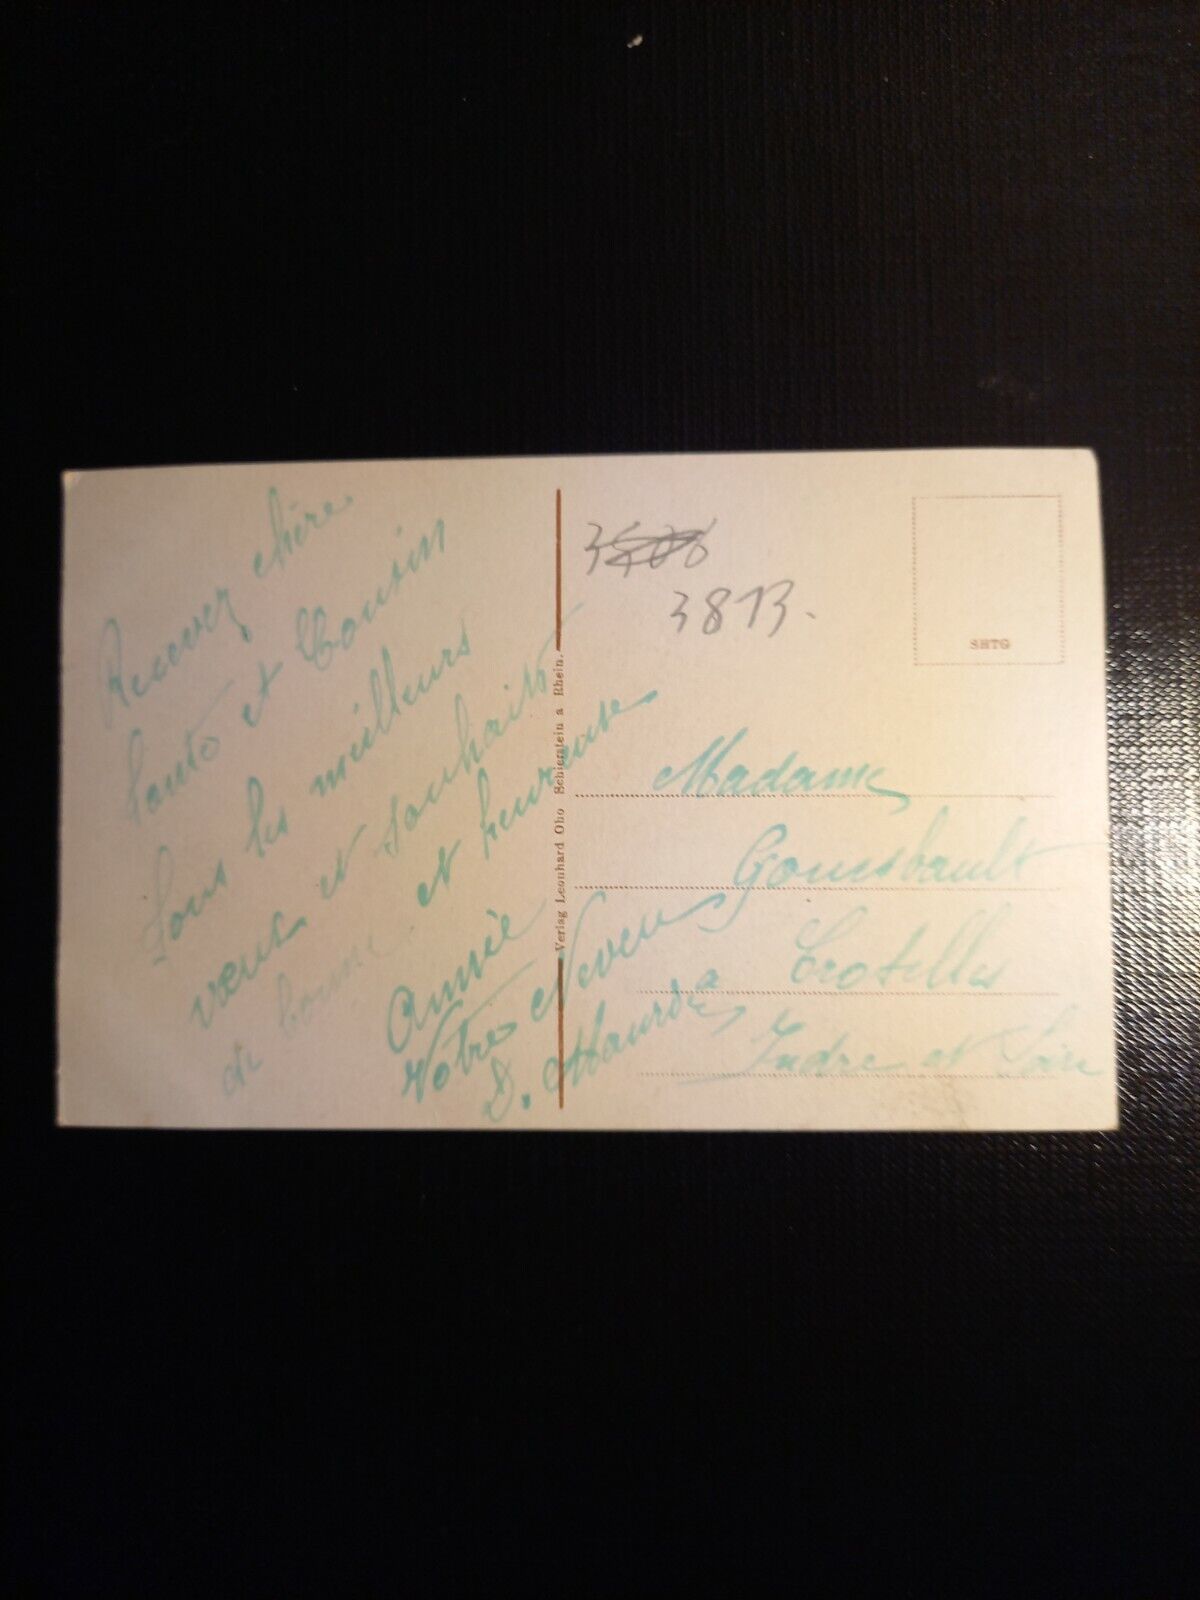 Recevez chère
tante et Cousin
tous les meilleurs
vœux et souhaits
de bonne et heureuse
Année
Votre Neveu
D.
Verlag Leonhard Obo Schierstein a Rhein.
3813.
SHTG
Madame
à
Crotelles
Indre et Loire